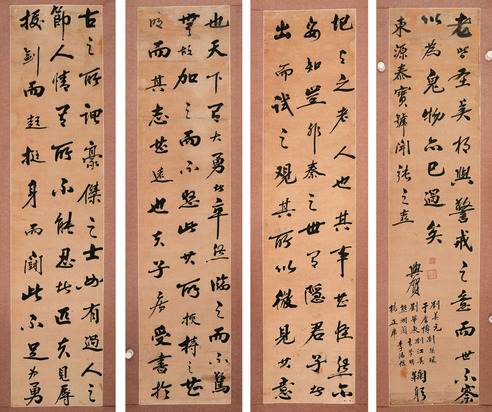 古之所謂豪傑之士必有過人之
節人情有所不能忍者匹夫見辱
拔劍而起挺身而鬭此不足為勇
也天下有大勇者卒然臨之而不驚
無故加之而不怒此其所挾持者甚
大而其志甚遠也夫子房受書於
圯上之老人也其事甚怪然亦
安知豈非秦之世有隱君子者
出而試之觀其所以微見其意
者皆聖賢相與警戒之意而世不察
以為鬼物亦已過矣
東源泰寶號開張之喜
賀
鞠躬